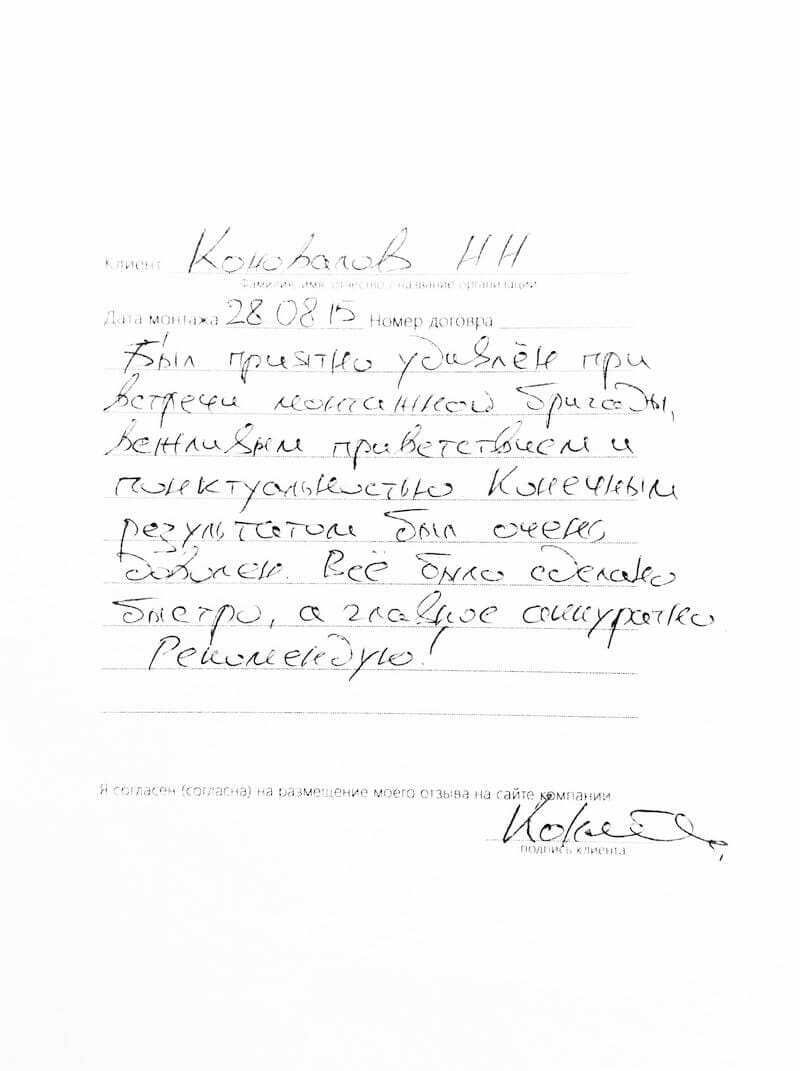 Клиент Коновалов НН
Фамилия, имя, отчество / название организации
Дата монтажа 28 08 15 Номер договра
Был приятно удивлён при
встречи монтажной бригады,
вежливым приветствием и
понктуальностью Конечным
результатом был очень
доволен. Всё было сделано
быстро, а главное аккуратно
Рекомендую!
Я согласен (согласна) на размещение моего отзыва на сайте компании
подпись клиента